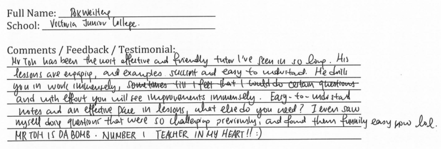 Full Name: Pok Weiheng
School: Victoria Junior College.
Comments / Feedback / Testimonial:
Mr Toh has been the most effective and friendly tutor I've seen in so long. His
lessons are engaging, and examples succinct and easy to understand. He drills
you in work immensely, sometimes till I felt that I could do certain questions
and with effort you will see improvements immensely. Easy-to-understand
notes and an effective pace in lessons, what else do you need? I even saw
myself done questions that were so challenging previously, and found them freaking easy now lol.
MR TOH IS DA BOMB. NUMBER 1 TEACHER IN MY HEART!! :)